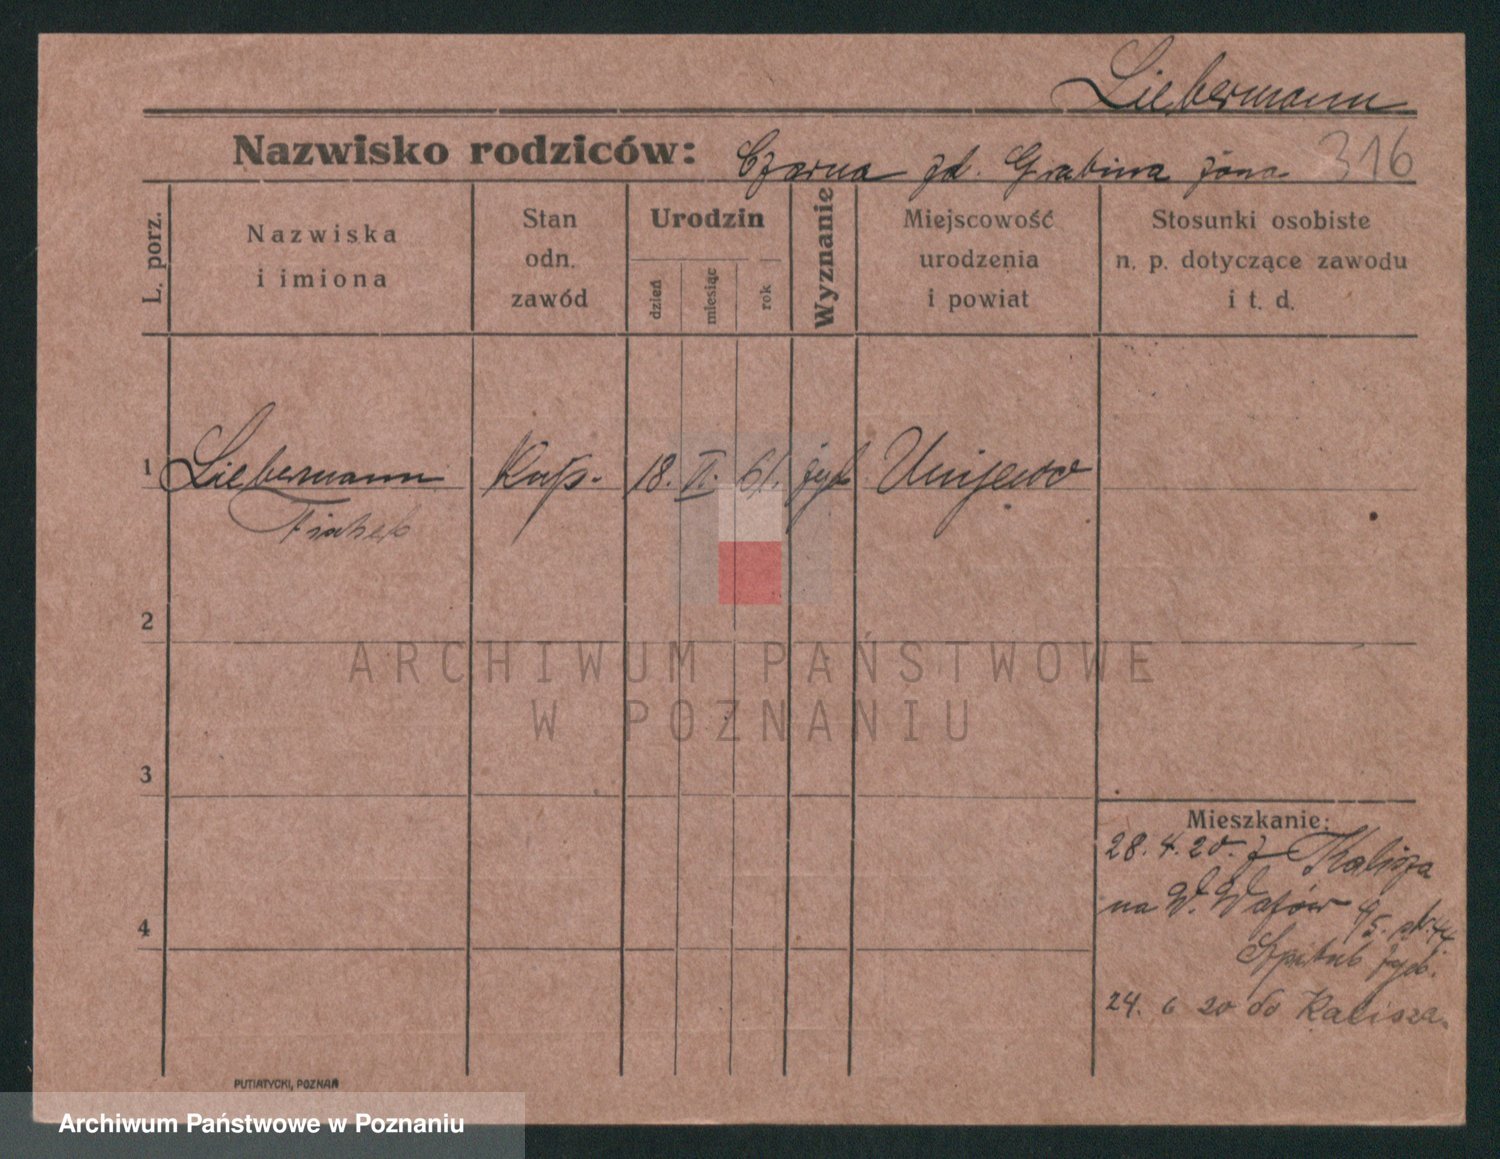 Liebermann
Nazwisko rodziców: Czarna zd. Grabina żona 316
L. porz.
Nazwiska
i imiona
Stan
odn.
zawód
Urodzin
dzień
miesiąc
rok
Wyznanie
Miejscowość
urodzenia
i powiat
Stosunki osobiste
n. p. dotyczące zawodu
i t. d.
1 Liebermann Kup. 18. II. 61. żyd
2
3
4
Mieszkanie:
28. 4. 20. z Kalisza
na W.
Szpital żyd.
24. 6 20 do Kalisza.
PUTIATYCKI, POZNAŃ
ARCHIWUM PAŃSTWOWE
W POZNANIU
Archiwum Państwowe w Poznaniu